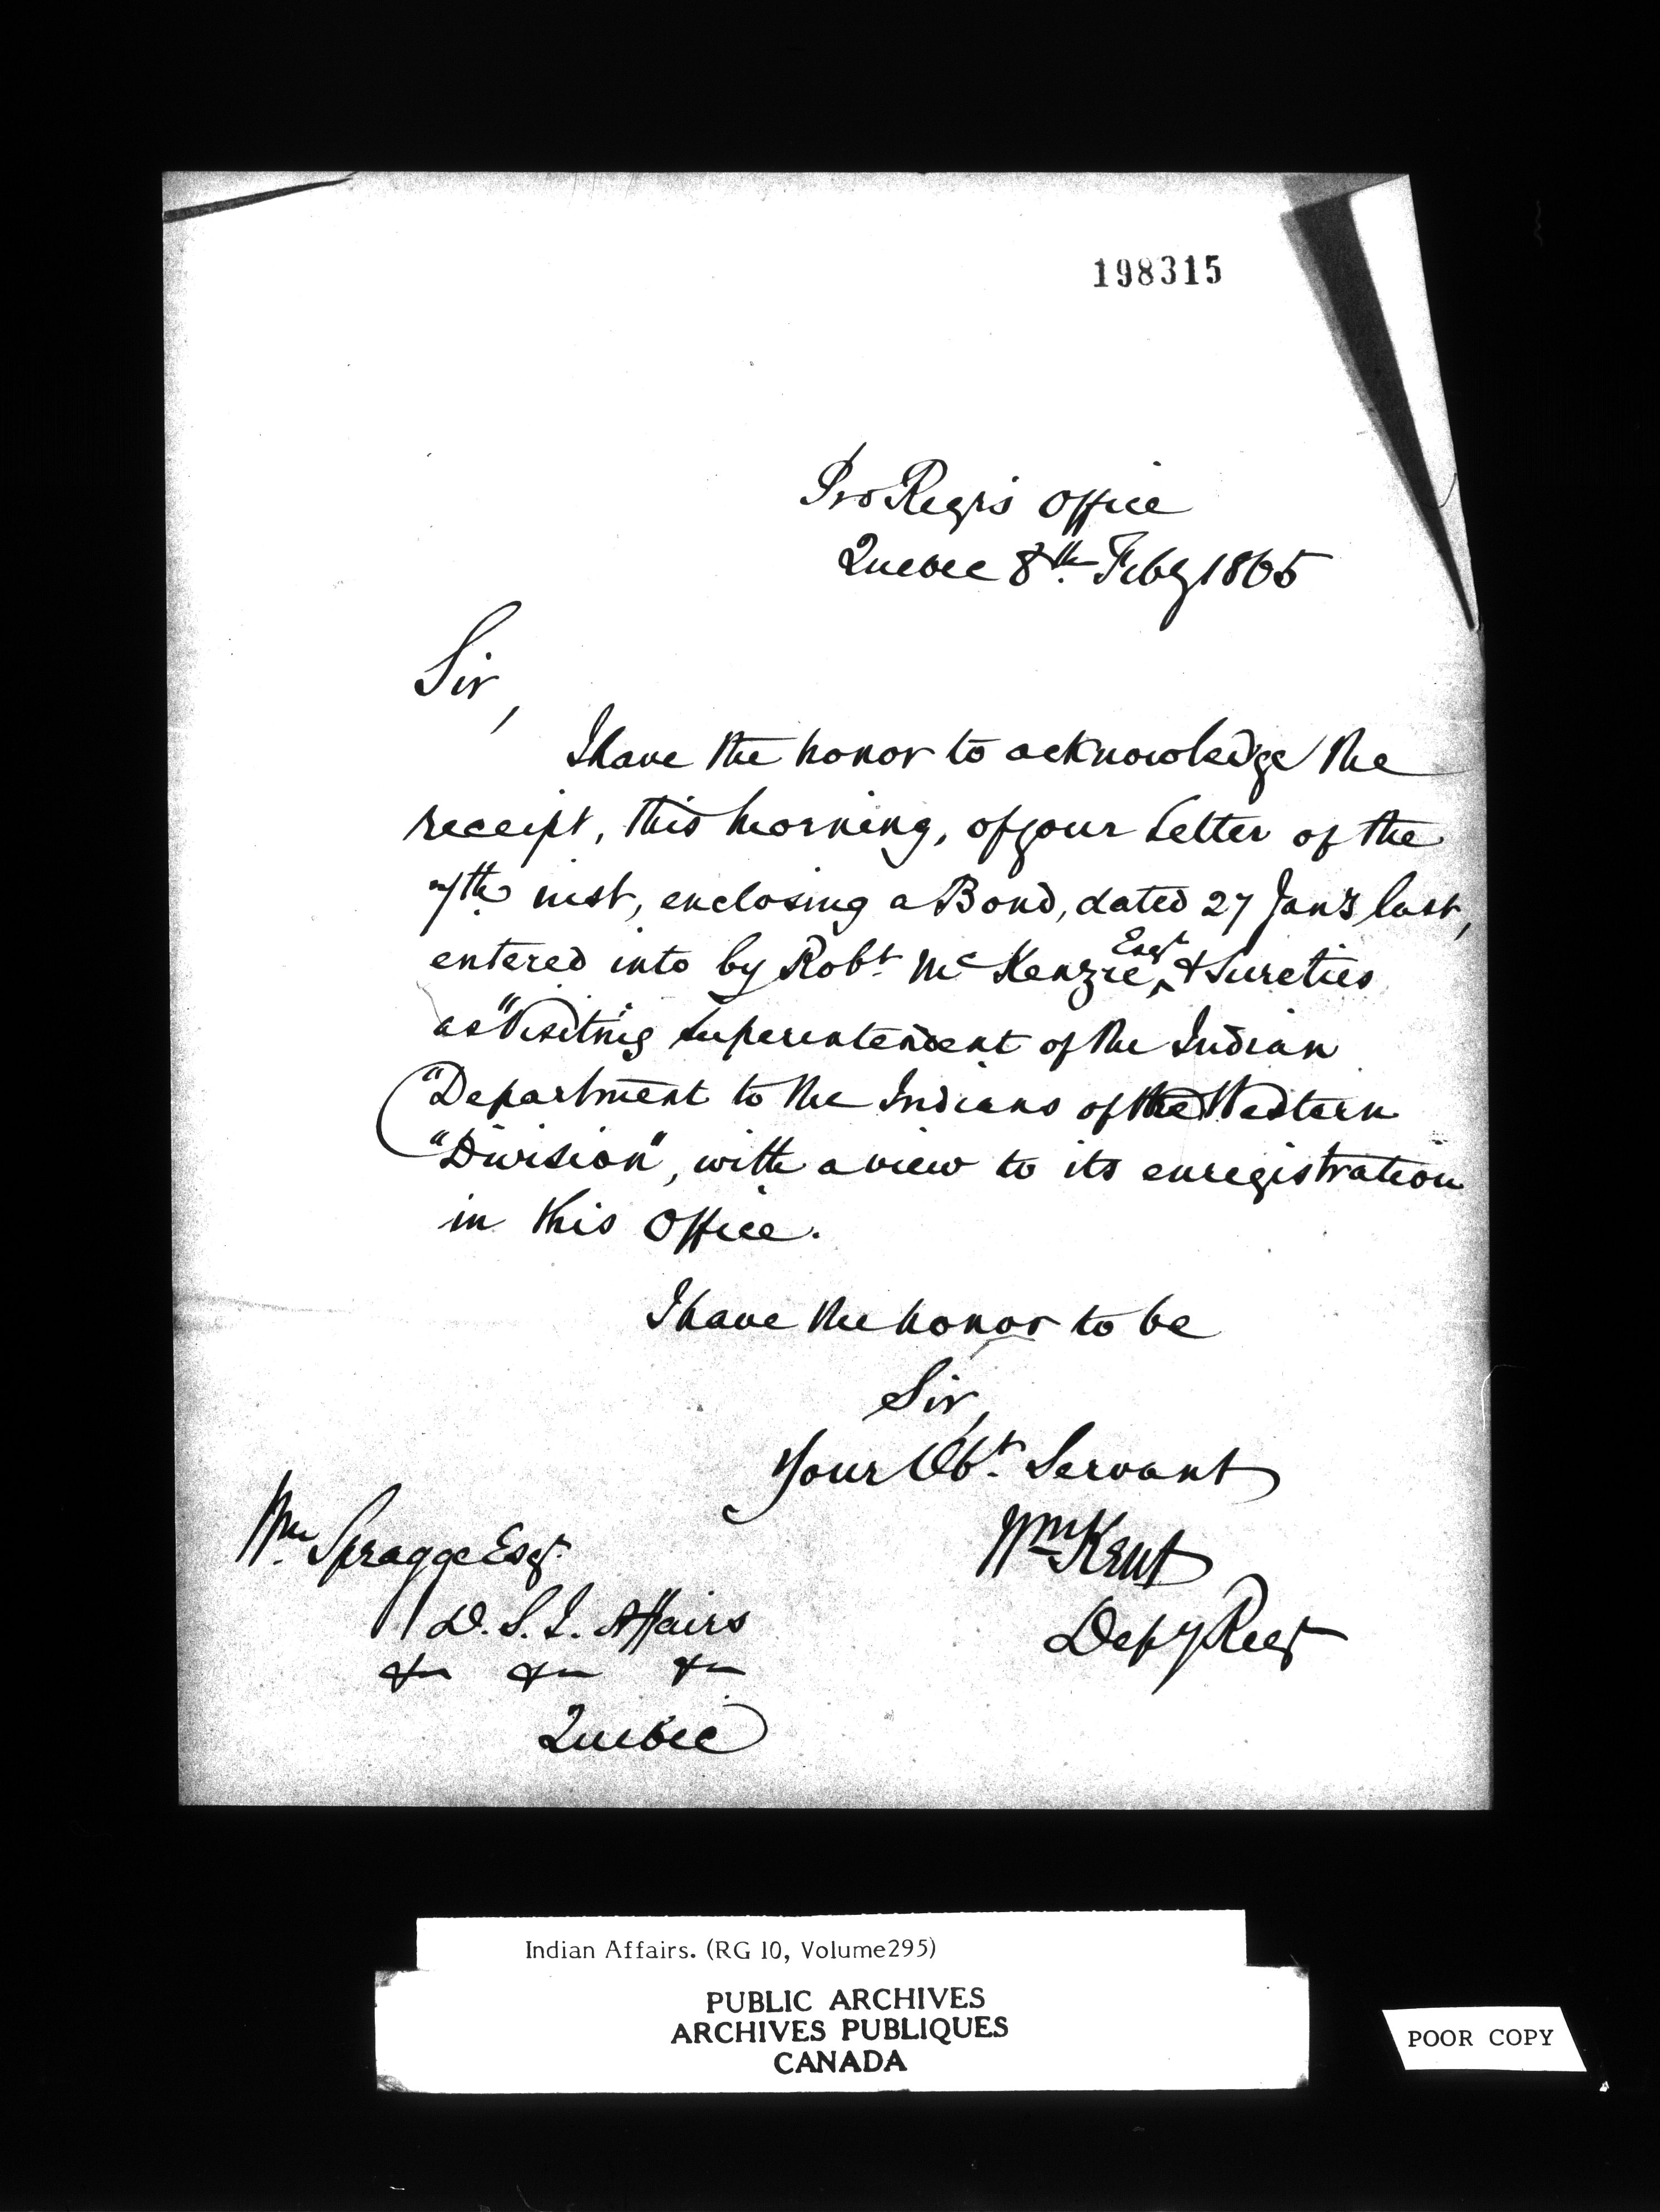 198315
Pro Regrs Office
Quebec 8th Feby 1865
Sir,
I have the honor to acknowledge the
receipt, this morning, of your letter of the
7th inst, enclosing a Bond, dated 27 Jany last,
entered into by Robt McKenzie Esqr & Sureties
as "Visiting Superintendent of the Indian
"Department to the Indians of the Western
"Division", with a view to its enregistration
in this Office.
I have the honor to be
Sir,
Your Obt Servant
Wm Kent
Depy Regr
Wm Spragge Esqr
D. S. I. Affairs
&c &c &c
Quebec
Indian Affairs. (RG 10, Volume 295)
PUBLIC ARCHIVES
ARCHIVES PUBLIQUES
CANADA
POOR COPY